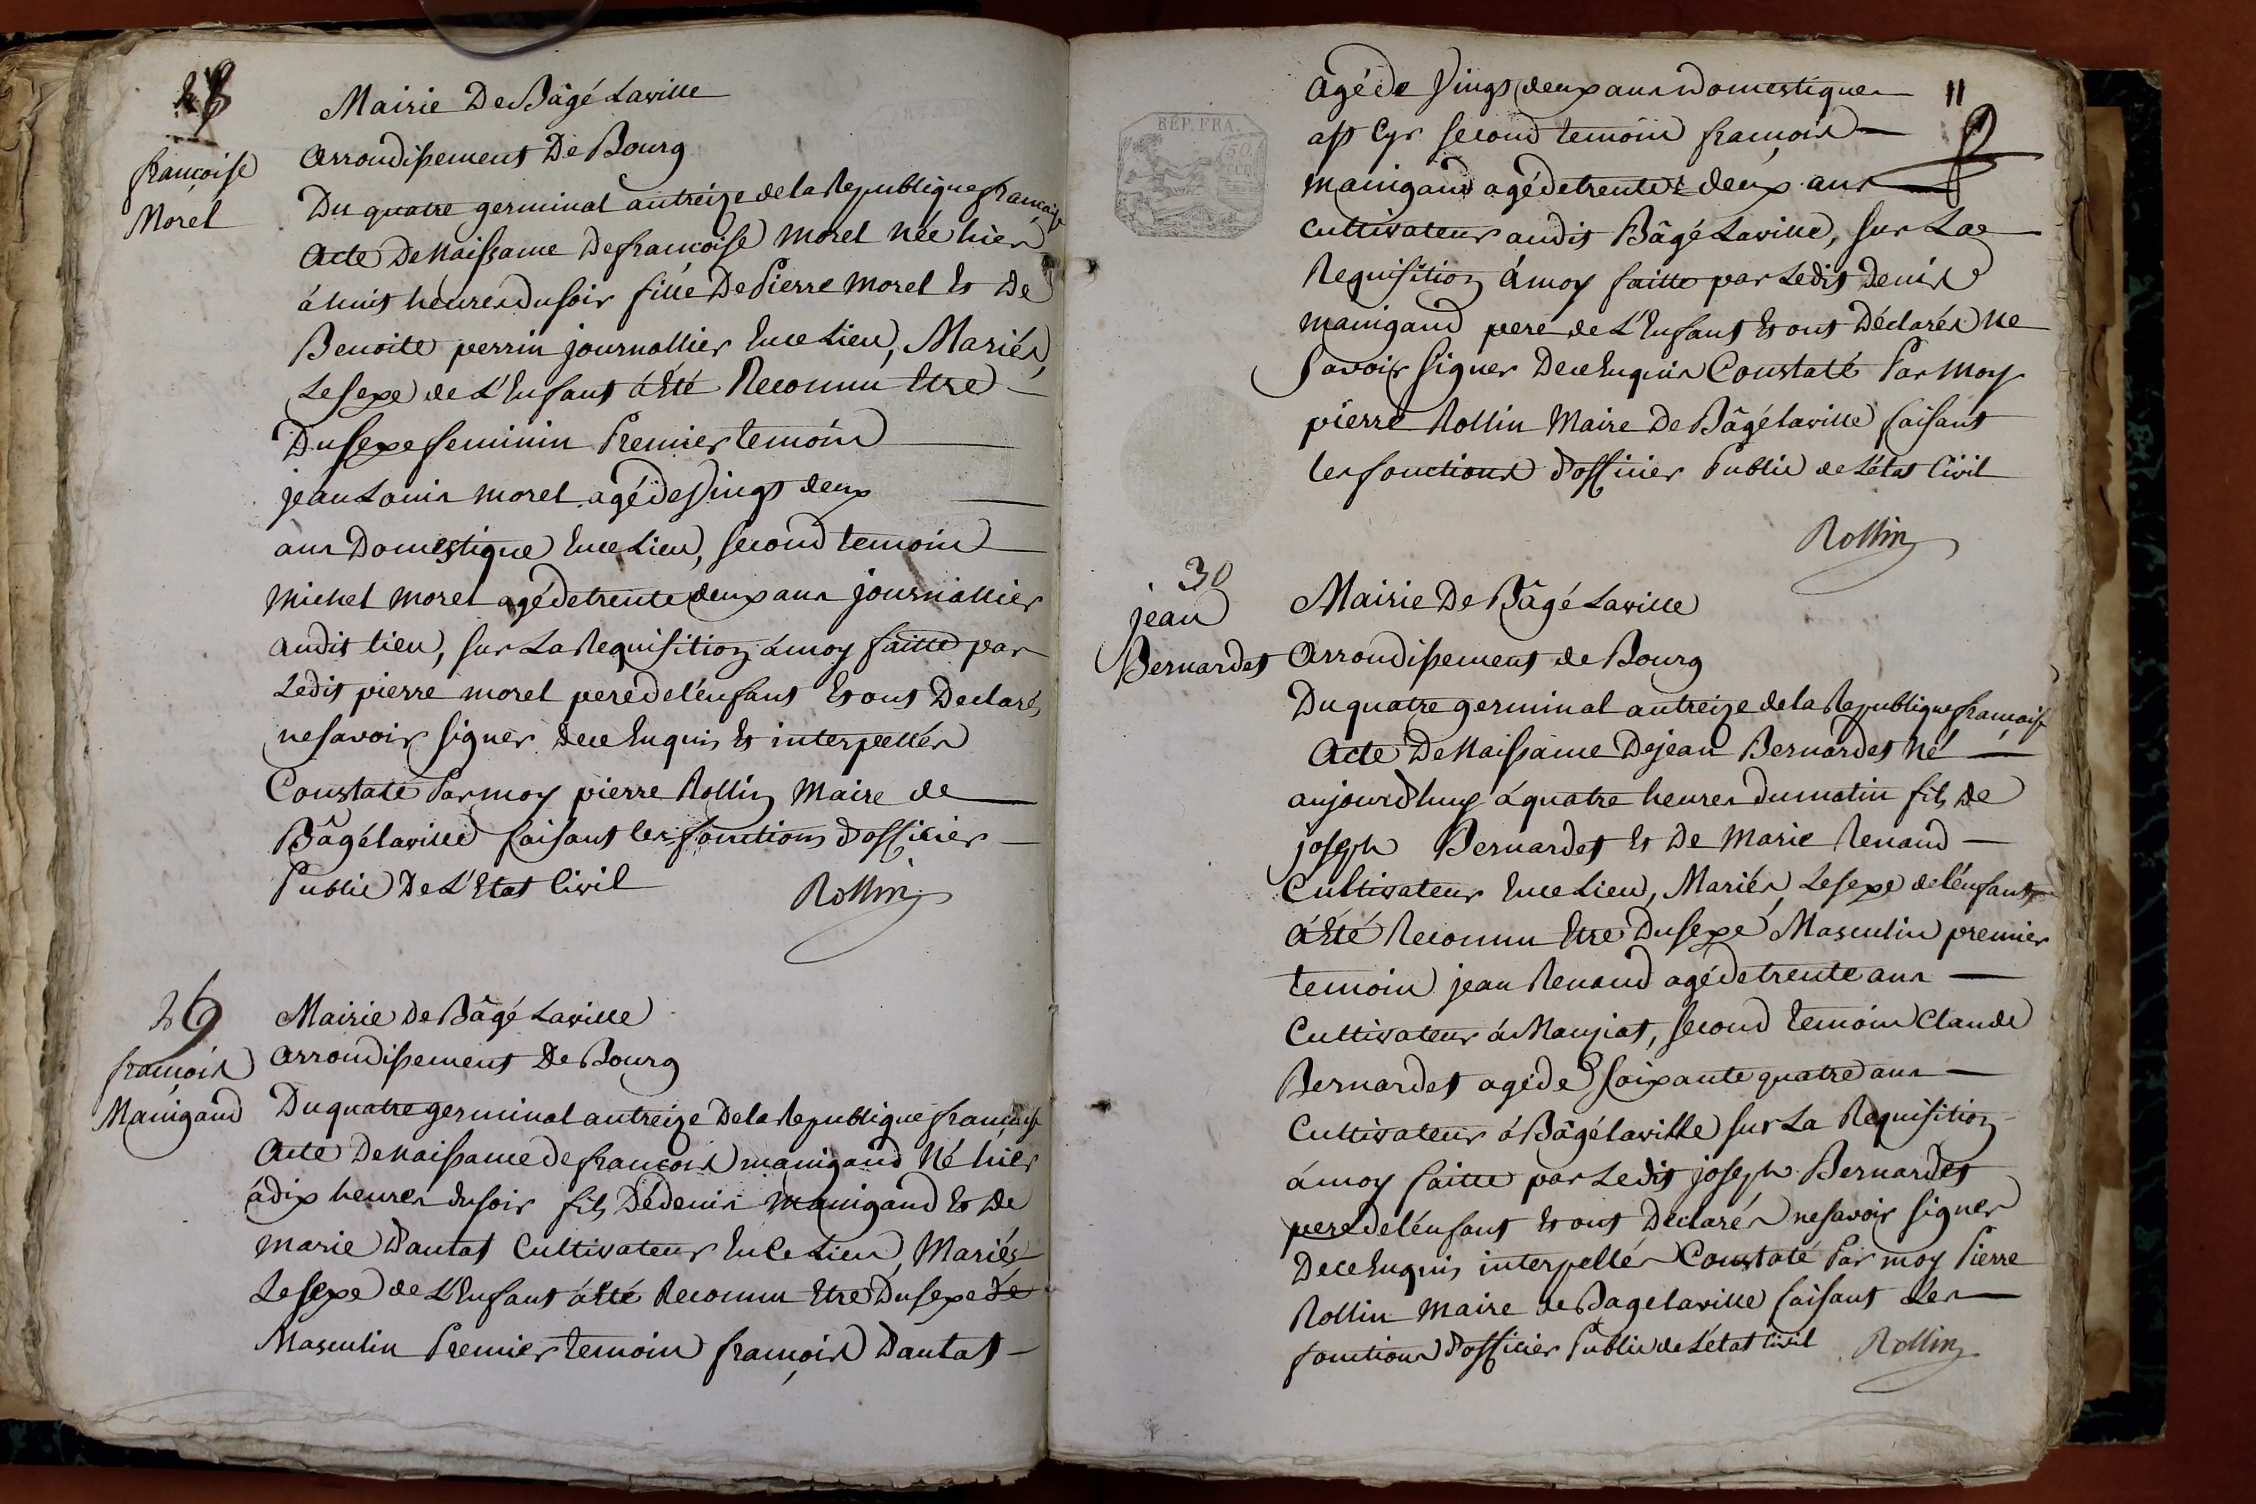 28
françoise
Morel
Mairie De Bâgé Laville
arrondissement De Bourg
Du quatre germinal an treize de la Republique française
Acte De Naissance De françoise Morel Née hier
à huit heures du soir fille De Pierre Morel Et De
Benoite perrin journallier En ce Lieu, Mariés,
Le sexe de L'Enfant á Eté Reconnu Etre
Du sexe feminin Premier temoin
jean Louis Morel agé de Vingt deux
ans Domestique En ce Lieu, second temoin
Michel Morel agé de trente deux ans journallier
audit lieu, sur La Requisition á moy faitte par
Ledit pierre Morel pere de l'enfant Et ont Declarés
ne savoir signer de ce Enquis Et interpellés
Constaté Par moy pierre Rollin Maire de
Bâgélaville faisant les fonctions d'officier
Public De L'Etat Civil
Rollin
29
françois
Manigand
Mairie De Bâgé Laville
arrondissement De Bourg
Du quatre germinal an treize De la Republique française
Acte De Naissance de françois Manigand Né hier
à dix heures du soir fils Dé denis Manigand Et De
Marie Dautat Cultivateur En Ce Lieu, Mariés
Le sexe de L'Enfant á Eté Reconnu Etre Du sexe de
Masculin Premier temoin françois Dautat
11
agé de Vingt deux ans Domestique
a St Cyr second temoin françois
Manigand agé de trente deux ans
Cultivateur audit Bâgé Laville, sur La
Requisition á moy faitte par Ledit Denis
Manigand pere de L'Enfant Et ont Déclarés Ne
savoir signer De ce Enquis Constaté Par moy
pierre Rollin Maire De Bâgélaville faisant
les fonctions d'officier Public de L'état Civil
Rollin
RÉP. FRA.
30
jean
Bernardet
Mairie De Bâgé Laville
Arrondissement de Bourg
Du quatre germinal an treize de la Republique française
Acte De Naissance De jean Bernardet Né
aujourd'huy á quatre heures du matin fils De
joseph Bernardet Et De Marie Renaud
Cultivateur En ce Lieu, Mariés, Le sexe de l'enfant
á Eté Reconnu Etre Du sexe Masculin premier
temoin jean Renaud agé de trente ans
Cultivateur á Manziat, second temoin Claude
Bernardet agé de soixante quatre ans
Cultivateur á Bâgélaville sur La Requisition
á moy faitte par Ledit joseph Bernardet
pere de l'enfant Et ont Déclarés ne savoir signer
De ce Enquis interpellés Constaté Par moy Pierre
Rollin Maire de Bagelaville faisant Les
fonctions d'officier Public de L'état Civil
Rollin